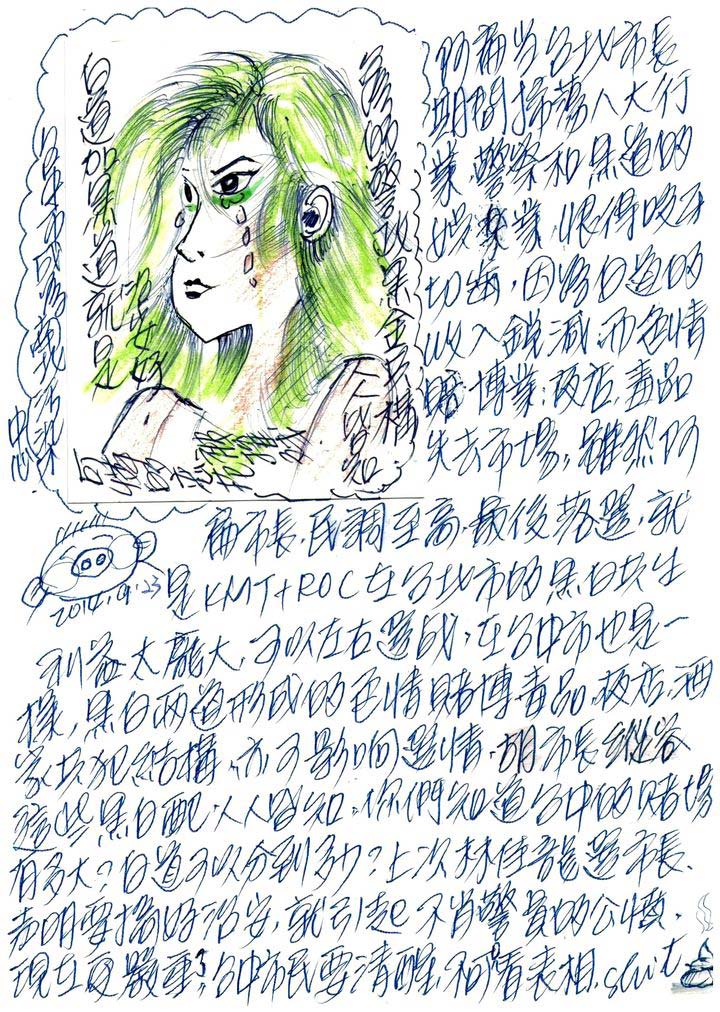 阿扁当台北市長
期間掃蕩八大行
業,警察和黑道的
恨得咬牙
切齒,因為白道的
收入銳減,而色情
賭博業;夜店,毒品
失去市場,雖然阿
扁市長,民調至高,最後落選,就
是KMT+ROC在台北市的黑白共生
利益太龐大,可以左右選战,在台中市也是一
樣,黑白兩道形成的色情賭博毒品,夜店,酒
家共犯結構,亦可影响選情,胡市長縱容
這些黑白配,人人皆知,你們知道台中的賭場
有多大?白道可以分到多少?上次林佳龍選市長、
声明要搞好治安,就引起不肖警員的公憤,
現在更嚴重;台中市民要清醒,不可看表相,shit
白道加黑道就是
黑金共構
人人皆知
台中市成為
污染
中心
2014.9.23